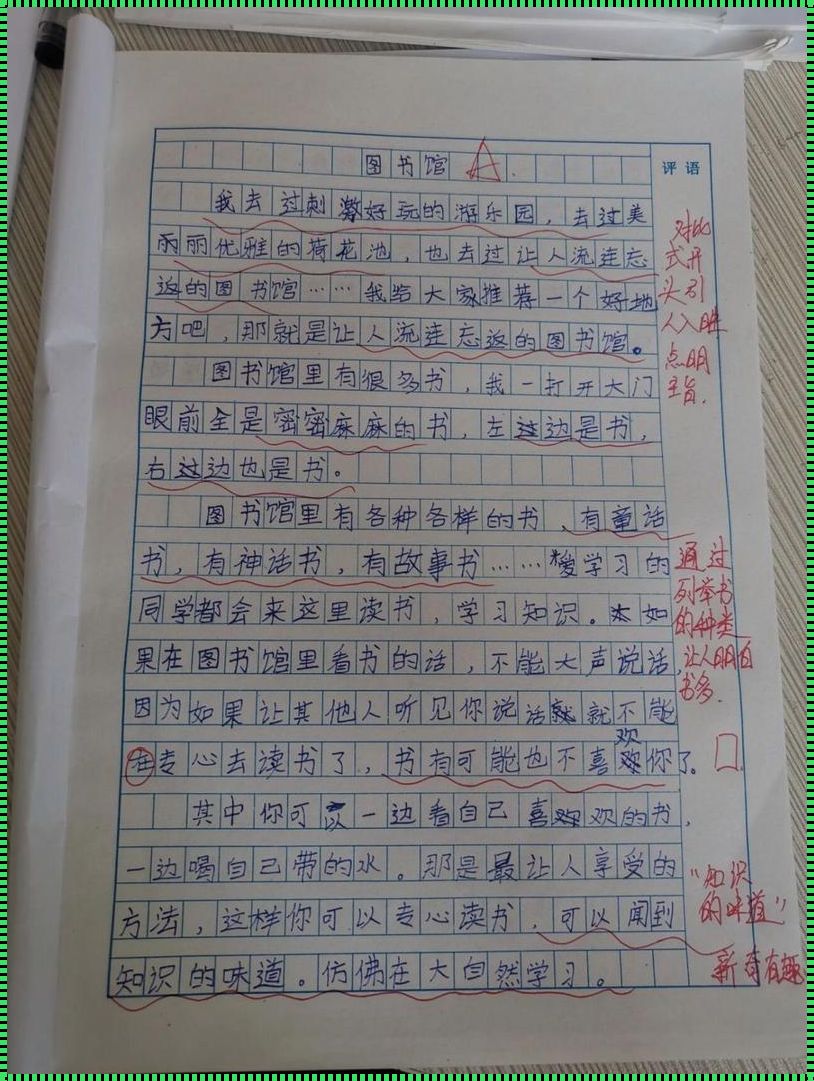 图书馆 A.
评语
我去过刺激好玩的游乐园，去过美
丽丽优雅的荷花池，也去过让人流连忘
返的图书馆……我给大家推荐一个好地
方吧，那就是让人流连忘返的图书馆。
图书馆里有很多书，我一打开大门
眼前全是密密麻麻的书，左这边是书，
右这边也是书。
图书馆里有各种各样的书，有童话
书，有神话书，有故事书……爱学习的
同学都会来这里读书，学习知识。如
果在图书馆里看书的话，不能大声说话，
因为如果让其他人听见你说话就就不能
在专心去读书了，书有可能也不喜欢你了。
其中你可以一边看自己喜欢的书，
一边喝自己带的水。那是最让人享受的
方法，这样你可以专心读书，可以闻到
知识的味道。仿佛在大自然学习。
对比
式开
头引
人入胜
点明
主旨.
通过
列举书
的种类
让人明白
书多.
“知识
的味道”
新奇有趣